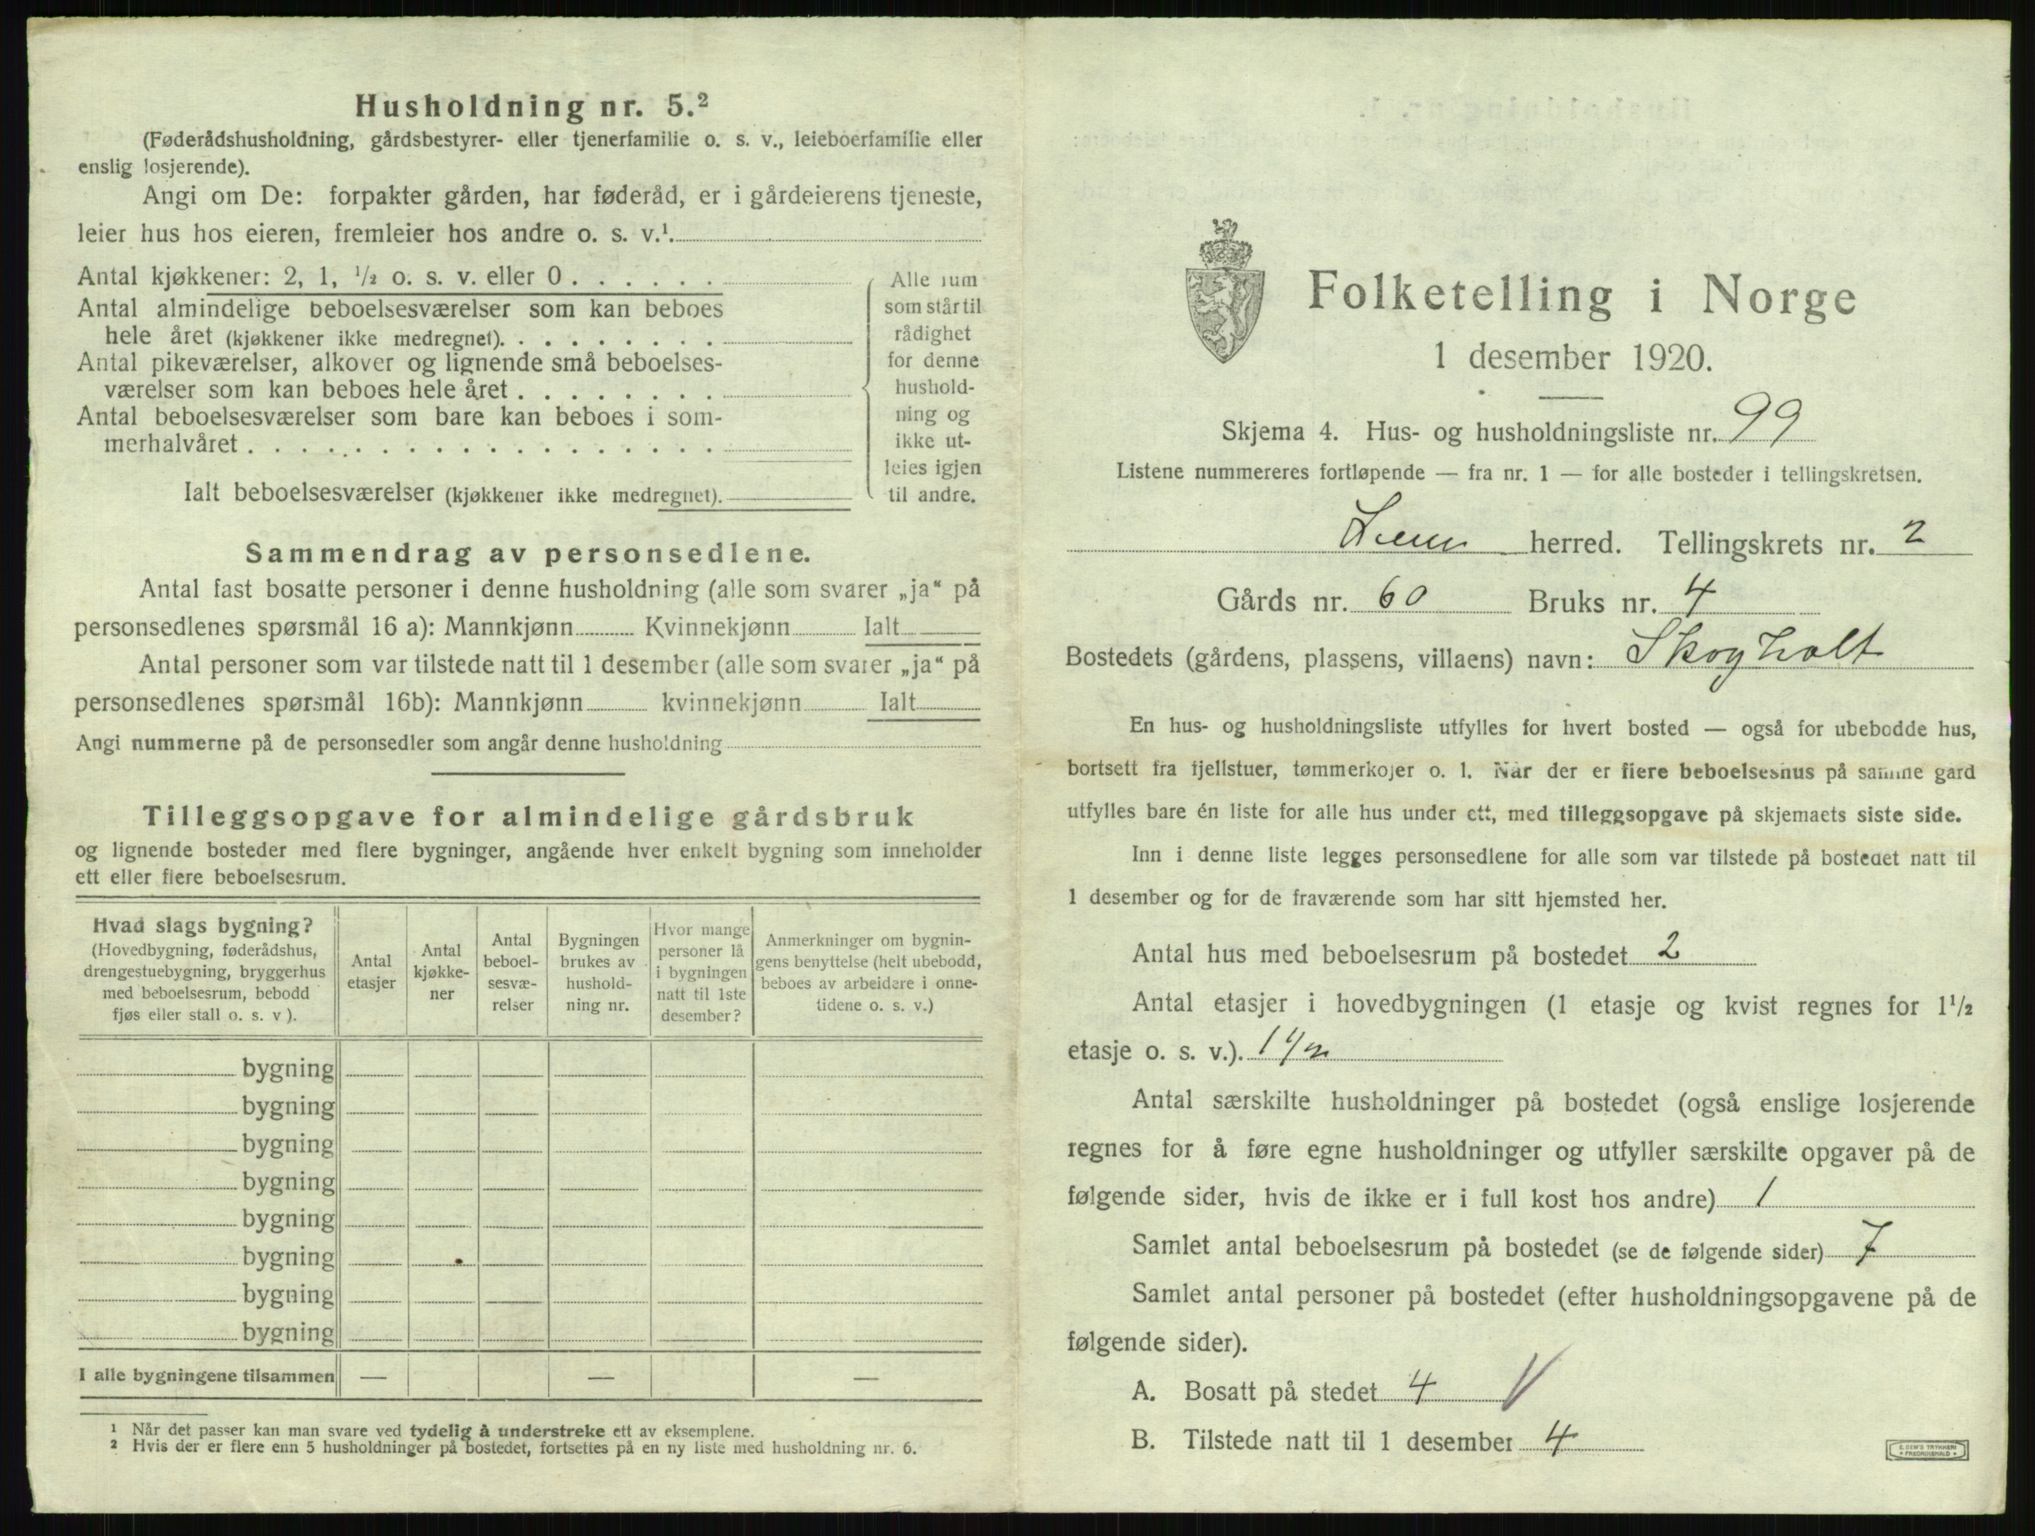 Husholdning nr. 5.²
(Føderådshusholdning, gårdsbestyrer- eller tjenerfamilie o. s. v., leieboerfamilie eller
enslig losjerende).
Angi om De: forpakter gården, har føderåd, er i gårdeierens tjeneste,
leier hus hos eieren, fremleier hos andre o. s. v.¹
Antal kjøkkener: 2, 1, ½ o. s. v. eller 0
Antal almindelige beboelsesværelser som kan beboes
hele året (kjøkkener ikke medregnet).
Antal pikeværelser, alkover og lignende små beboelses-
værelser som kan beboes hele året
Antal beboelsesværelser som bare kan beboes i som-
merhalvåret
Ialt beboelsesværelser (kjøkkener ikke medregnet).
Alle rum
som står til
rådighet
for denne
hushold-
ning og
ikke ut-
leies igjen
til andre.
Sammendrag av personsedlene.
Antal fast bosatte personer i denne husholdning (alle som svarer „ja“ på
personsedlenes spørsmål 16 a): Mannkjønn Kvinnekjønn Ialt
Antal personer som var tilstede natt til 1 desember (alle som svarer „ja“ på
personsedlenes spørsmål 16b): Mannkjønn kvinnekjønn Ialt
Angi nummerne på de personsedler som angår denne husholdning
Tilleggsopgave for almindelige gårdsbruk
og lignende bosteder med flere bygninger, angående hver enkelt bygning som inneholder
ett eller flere beboelsesrum.
Hvad slags bygning?
(Hovedbygning, føderådshus,
drengestuebygning, bryggerhus
med beboelsesrum, bebodd
fjøs eller stall o. s. v ).
Antal
etasjer
Antal
kjøkke-
ner
Antal
beboel-
sesvæ-
relser
Bygningen
brukes av
hushold-
ning nr.
Hvor mange
personer lå
i bygningen
natt til 1ste
desember?
Anmerkninger om bygnin-
gens benyttelse (helt ubebodd,
beboes av arbeidere i onne-
tidene o. s. v.)
bygning
bygning
bygning
bygning
bygning
bygning
bygning
bygning
I alle bygningene tilsammen — — —
¹ Når det passer kan man svare ved tydelig å understreke ett av eksemplene.
² Hvis der er flere enn 5 husholdninger på bostedet, fortsettes på en ny liste med husholdning nr. 6.
Folketelling i Norge
1 desember 1920.
Skjema 4. Hus- og husholdningsliste nr. 99
Listene nummereres fortløpende — fra nr. 1 — for alle bosteder i tellingskretsen.
herred. Tellingskrets nr. 2
Gårds nr. 60 Bruks nr. 4
Bostedets (gårdens, plassens, villaens) navn: Skogholt
En hus- og husholdningsliste utfylles for hvert bosted — også for ubebodde hus,
bortsett fra fjellstuer, tømmerkojer o. l. Når der er flere beboelseshus på samme gård
utfylles bare én liste for alle hus under ett, med tilleggsopgave på skjemaets siste side.
Inn i denne liste legges personsedlene for alle som var tilstede på bostedet natt til
1 desember og for de fraværende som har sitt hjemsted her.
Antal hus med beboelsesrum på bostedet 2
Antal etasjer i hovedbygningen (1 etasje og kvist regnes for 1½
etasje o. s. v.). 1 1/2
Antal særskilte husholdninger på bostedet (også enslige losjerende
regnes for å føre egne husholdninger og utfyller særskilte opgaver på de
følgende sider, hvis de ikke er i full kost hos andre) 1
Samlet antal beboelsesrum på bostedet (se de følgende sider) 7
Samlet antal personer på bostedet (efter husholdningsopgavene på de
følgende sider).
A. Bosatt på stedet 4
B. Tilstede natt til 1 desember 4
E. SEM'S TRYKKERI
FREDRIKSHALD